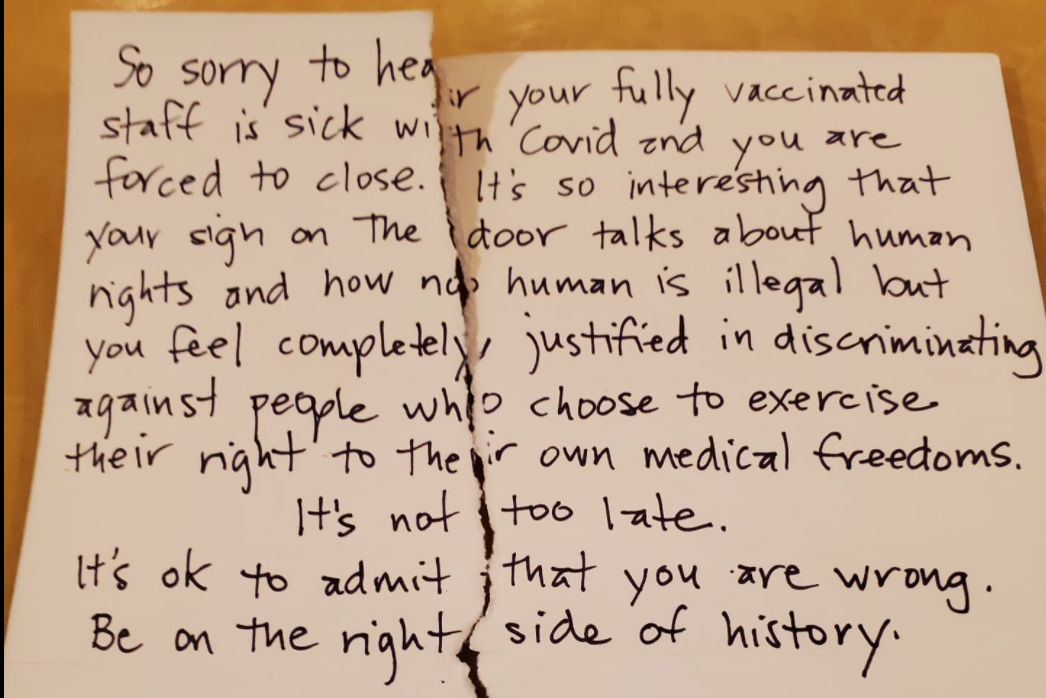 So sorry to hear your fully vaccinated
staff is sick with Covid and you are
forced to close. It's so interesting that
your sign on the door talks about human
rights and how no human is illegal but
you feel completely justified in discriminating
against people who choose to exercise
their right to their own medical freedoms.
It's not too late.
It's ok to admit that you are wrong.
Be on the right side of history.